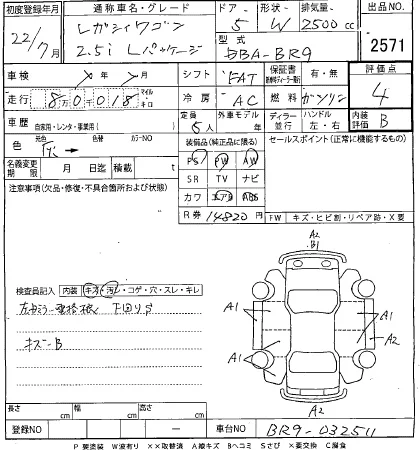 初度登録年月 通称車名・グレード ドア 形状 排気量 出品NO.
22/7月 レガシィワゴン 2.5i Lパッケージ 5 W 2500cc 2571
型式 DBA-BR9
車検 年 月 シフト FAT 保証書 有・無 評価点 4
走行 8万0018 マイル キロ 冷房 AC 燃料 ガソリン
車歴 自家用・レンタ・事業用( ) 定員 5人 外車モデル 年 ディーラー 並行 ハンドル 左・右 内装評価 B
色 元色 色替 カラーNO 装備品(純正品に限る) セールスポイント(正常に機能するもの)
名義変更期限 月 日迄 積載 t PS PW AW
注意事項(欠品・修復・不具合箇所および状態) SR TV ナビ
カワ エアB ABS
R券 14820円 FW キズ・ヒビ割・リペア跡・X要
A2
B1
検査員記入 内装 キズ・汚レ・コゲ・穴・スレ・キレ
A1 A1
A2
下回りS
キズ-B
A1
A2
長さ cm 幅 cm 高さ cm
登録NO 車台NO BR9-032511
P 要塗装 W波有り ××取替済 A線キズ Bヘコミ Sさび ×要交換 C腐食